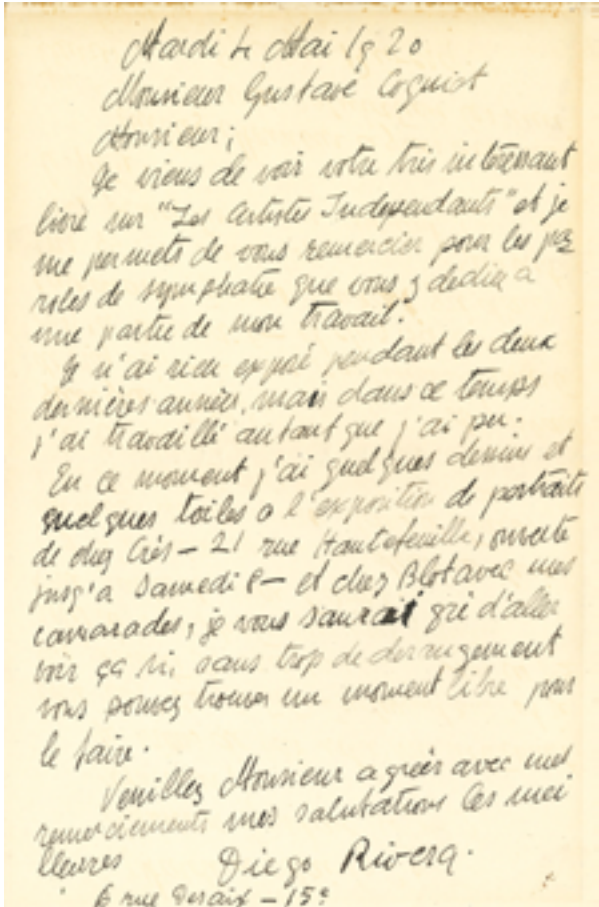 Mardi 4 Mai 1920
Monsieur Gustave Coquiot
Monsieur;
Je viens de voir votre très intéressant
livre sur "Les Artistes Independants" et je
me permets de vous remercier pour les pa
roles de symphatie que vous y dediez a
une partie de mon travail.
Je n'ai rien exposé pendant les deux
dernières années, mais dans ce temps
j'ai travaillé autant que j'ai pu.
En ce moment j'ai quelques dessins et
quelques toiles a l'exposition de portraits
de chez Crès – 21 rue Hautefeuille, ouverte
jusq'a Samedi 8 – et chez Blot avec mes
camarades, je vous saurai gré d'aller
voir ça si, sans trop de derrangement
vous pouvez trouver un moment libre pour
le faire.
Veuillez Monsieur agréer avec mes
remerciements mes salutations les mei
lleures Diego Rivera.
6 rue Desaix – 15e